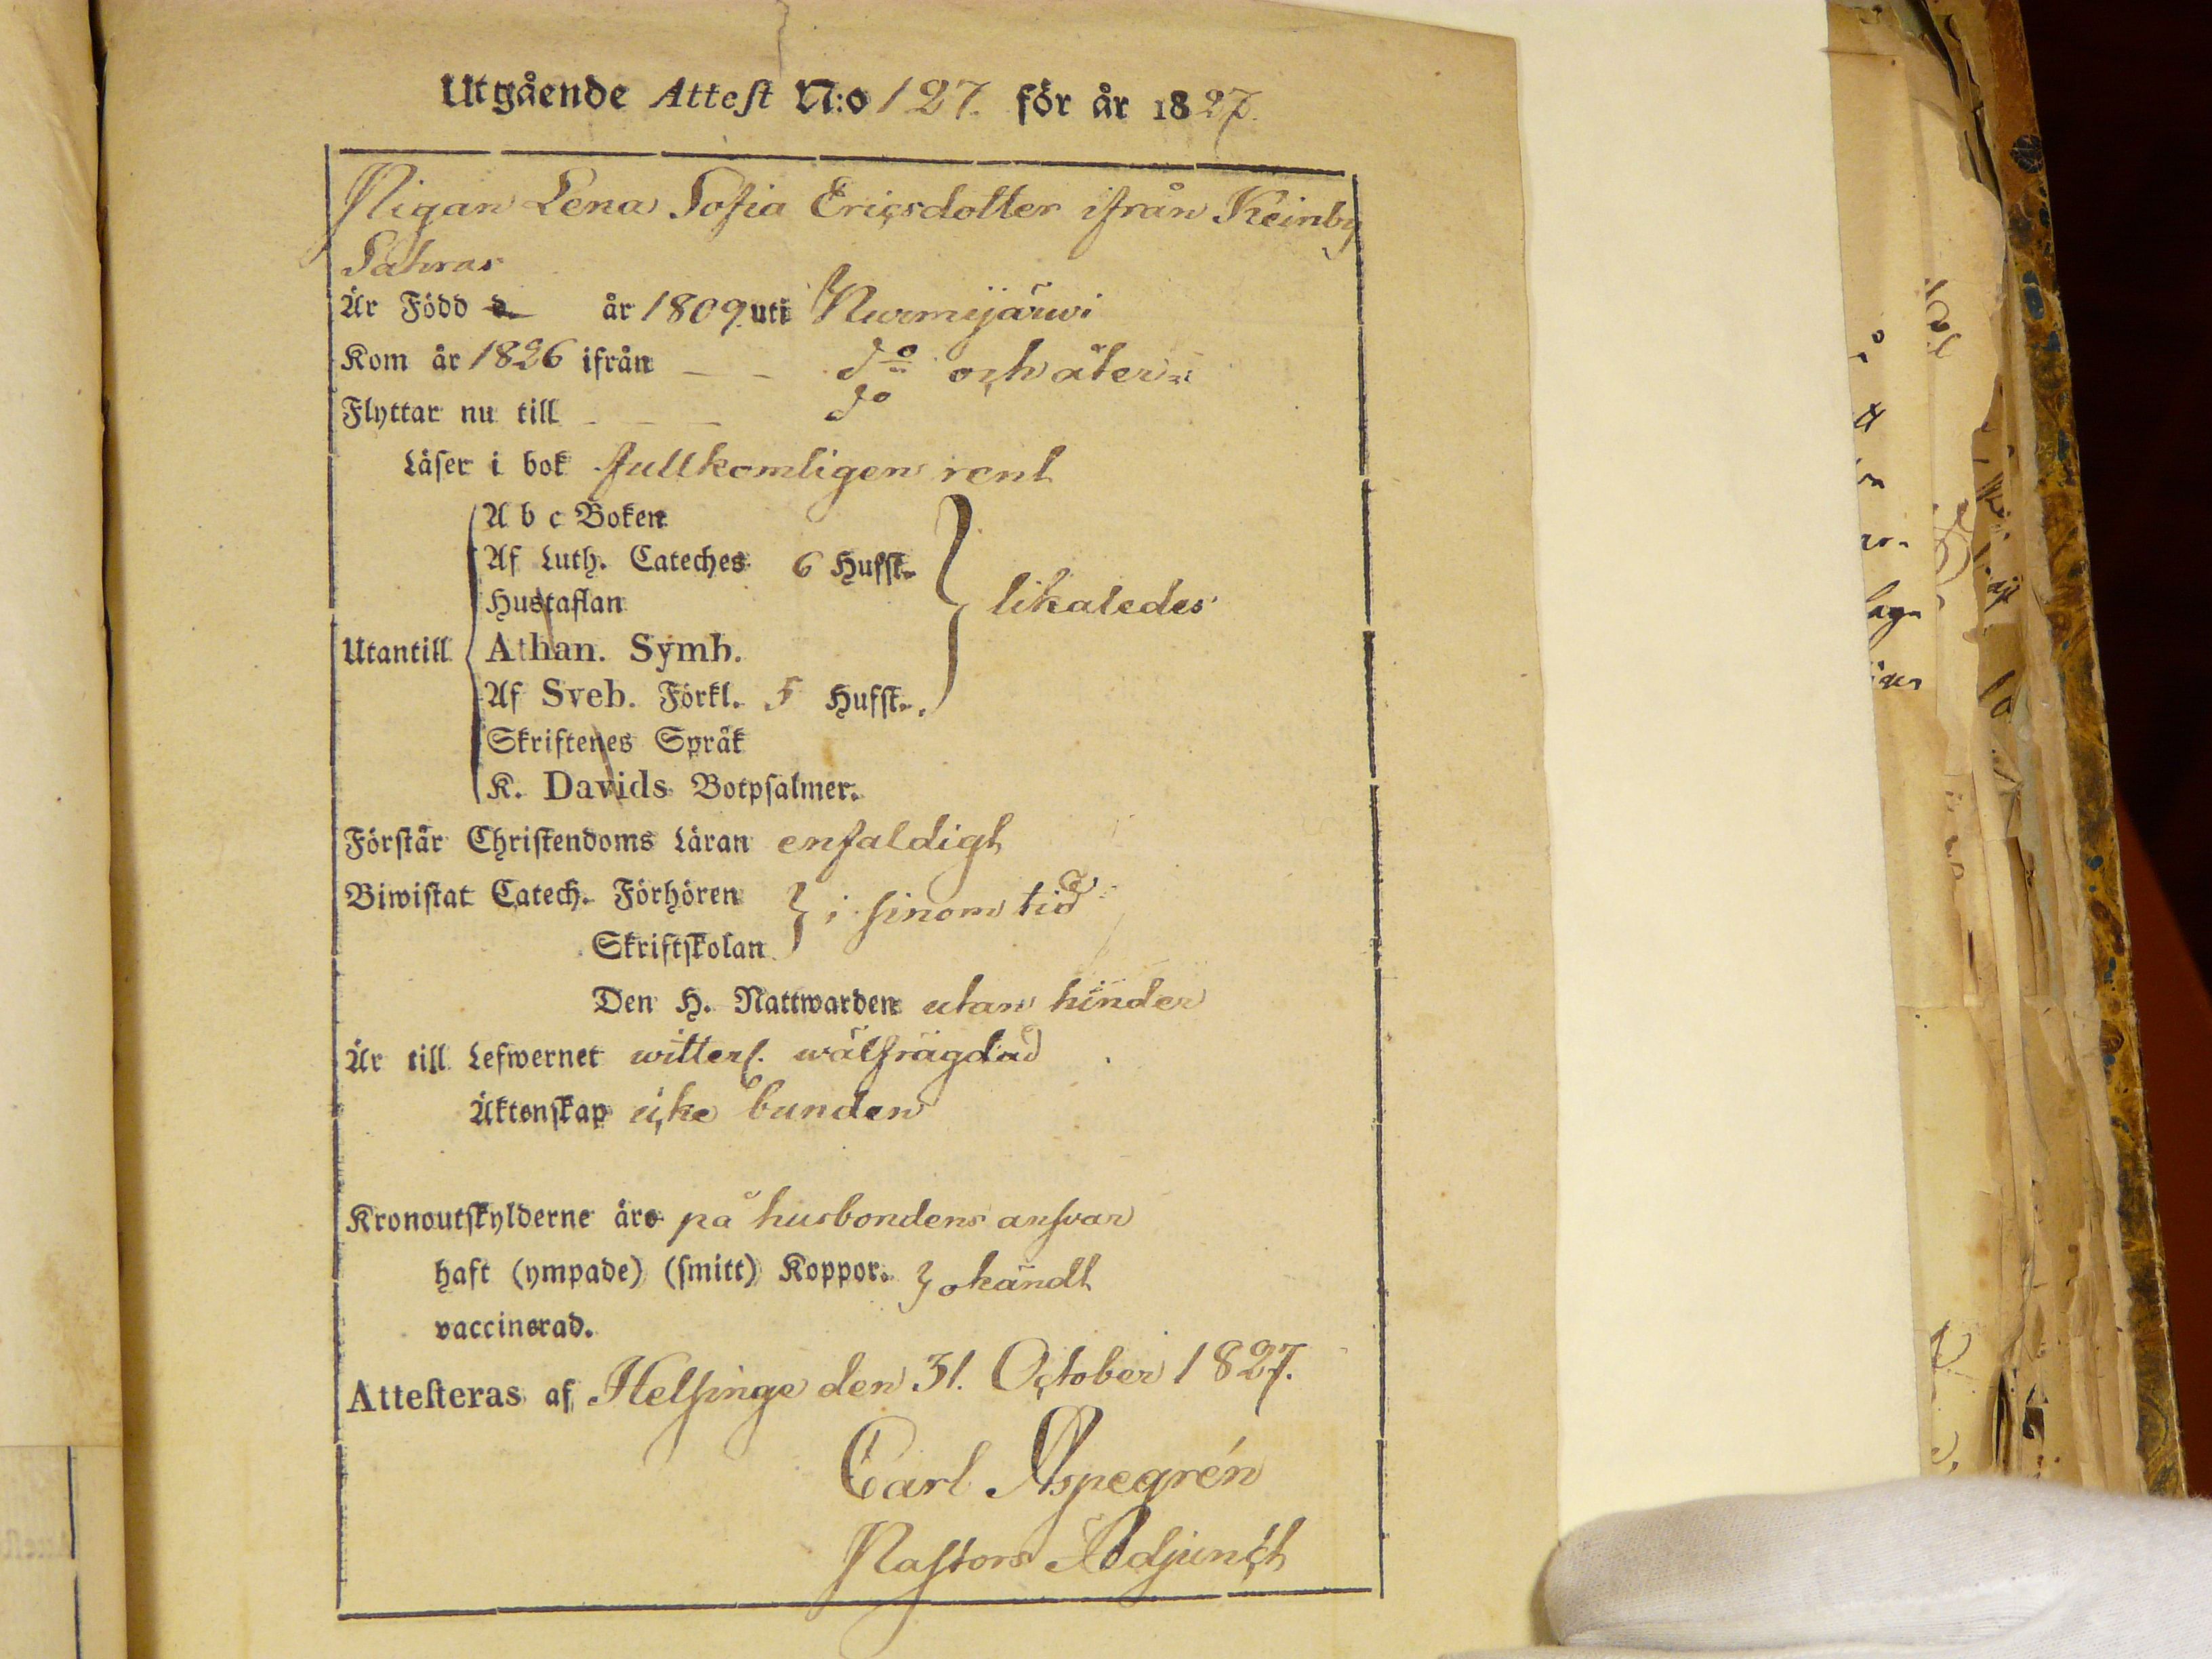 Utgående Attest N:o 127. för år 1827.
Pigan Lena Sofia Ericsdotter ifrån Keinby
Sahras
Är Född d. år 1809 uti Nurmijärwi
Kom år 1826 ifrån - - do och åter
Flyttar nu till - - - do
Läser i bok fullkomligen rent
A b c Boken
Af Luth. Cateches 6 Hufst.
Hustaflan
likaledes
Utantill Athan. Symb.
Af Sveb. Förkl. 5 Hufst.
Skriftenes Språk
K. Davids Botpsalmer.
Förstår Christendoms Läran enfaldigt
Biwistat Catech. Förhören
i sinom tid
Skriftskolan
Den H. Nattwarden utan hinder
Är till Lefwernet witterl. wälfrägdad
Äktenskap icke bunden
Kronoutskylderne äro på husbondens answar
haft (ympade) (smitt) Koppor. okändt
vaccinerad.
Attesteras af Helsinge den 31. October 1827.
Carl Aspegrén
Pastors Adjunct